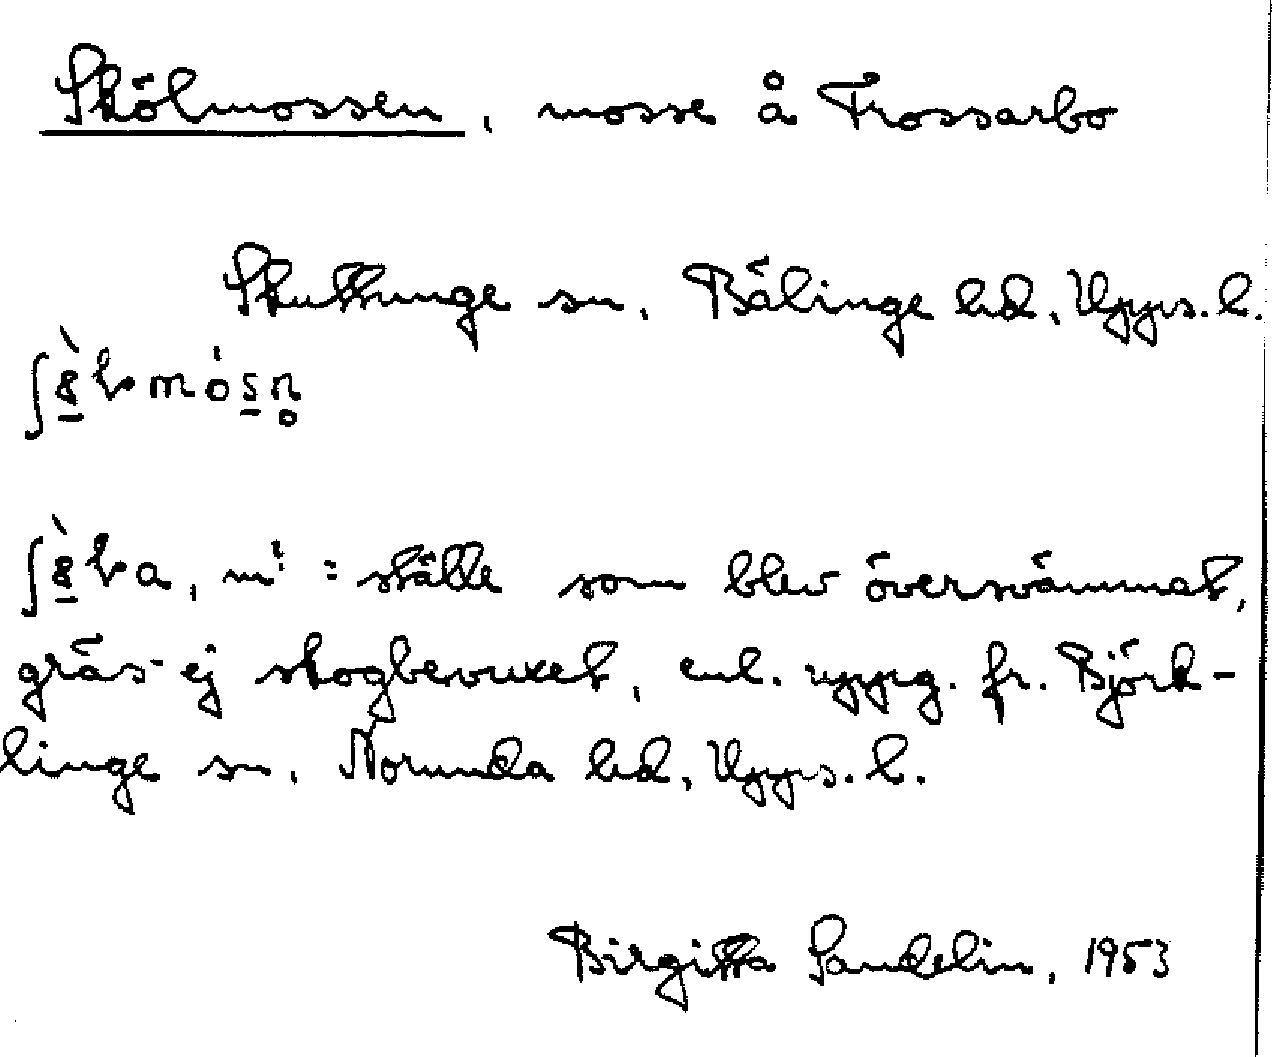 Skölmossen, mosse å Frossarbo
Skuttunge sn, Bälinge hd, Upps. l.
m. : ställe som blev översvämmat,
gräs- ej skogbevuxet, enl. uppg. fr. Björk-
linge sn, Norunda hd, Upps. l.
Birgitta Sandelin, 1953